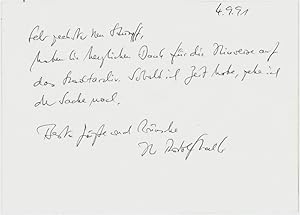 4.9.91
Sehr geehrter Herr
haben Sie herzlichen Dank für die Hinweise auf
das . Sobald ich Zeit habe, gehe ich
der Sache nach.
Beste Grüße und Wünsche